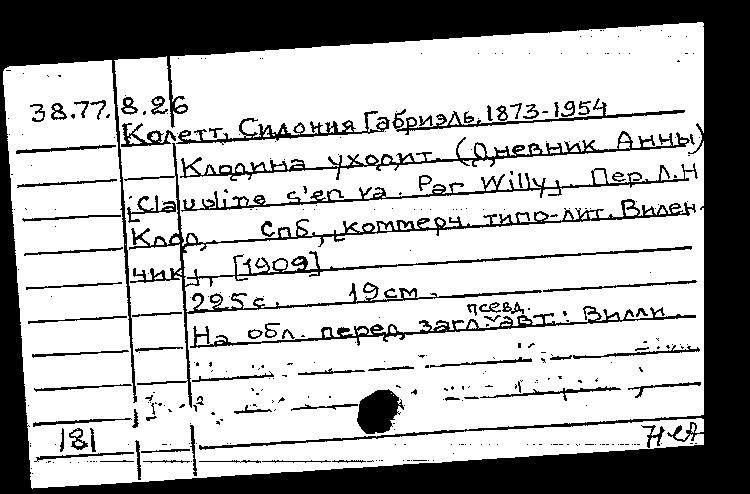 38.77.8.26
Колетт, Сидония Габриэль, 1873-1954
Клодина уходит. (Дневник Анны)
[Claudine s'en va. Par Willy]. Пер. Л.Н
Клод, Спб., [коммерч. типо-лит. Вилен-
чик], [1909].
225 с. 19 см.
На обл. перед загл. псевд. авт.: Вилли
181